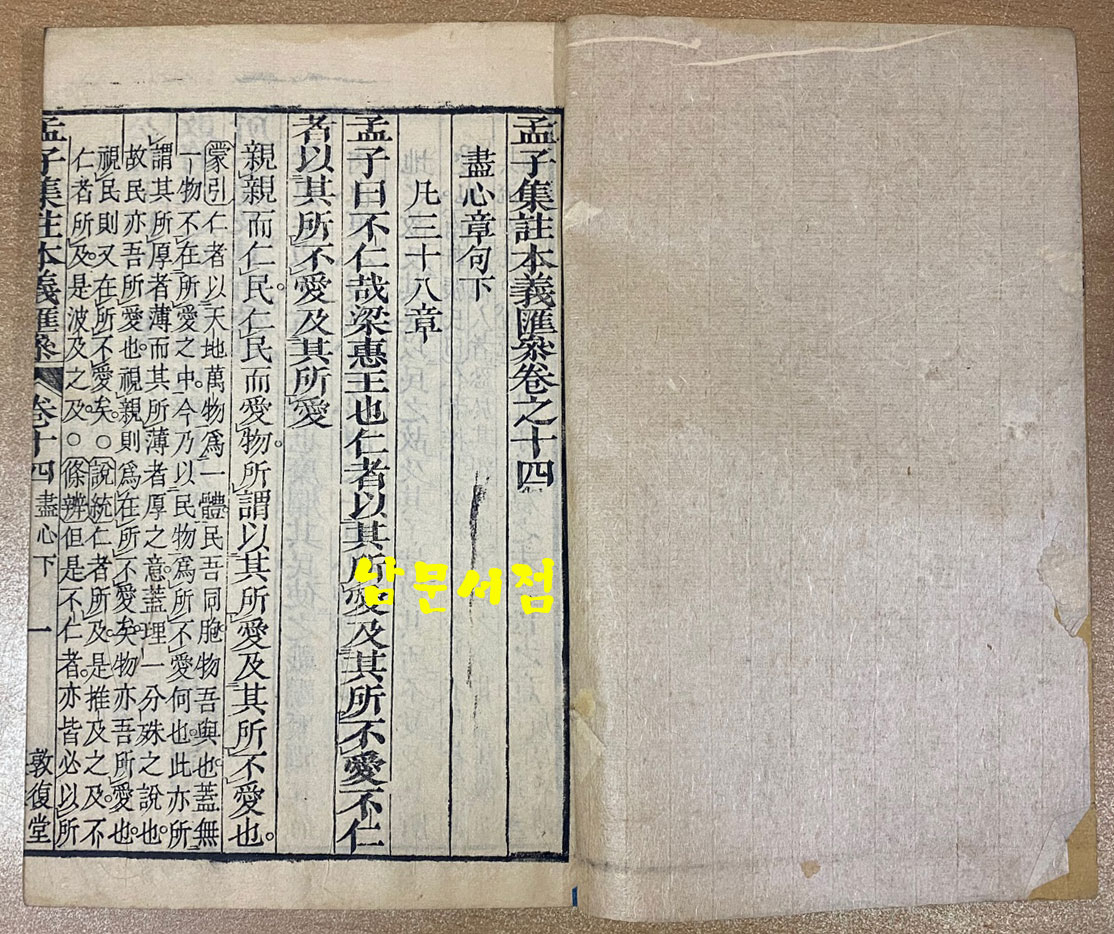 孟子集註本義匯叅卷之十四
盡心章句下
凡三十八章
孟子曰不仁哉梁惠王也仁者以其所愛及其所不愛不仁
者以其所不愛及其所愛
親親而仁民。仁民而愛物。所謂以其所愛及其所不愛也。
蒙引仁者以天地萬物爲一體民吾同胞物吾與也蓋無
一物不在所愛之中今乃以民物爲所不愛何也此亦所
謂其所厚者薄而其所薄者厚之意蓋理一分殊之說也。
故民亦吾所愛也。視親則爲在所不愛矣。物亦吾所愛也。
視民則又在所不愛矣。○說統仁者所及。是推及之及。不
仁者所及。是波及之及。○條辨但是不仁者。亦皆必以所
孟子集註本義匯叅 卷十四 盡心下 一 敦復堂
남문서점